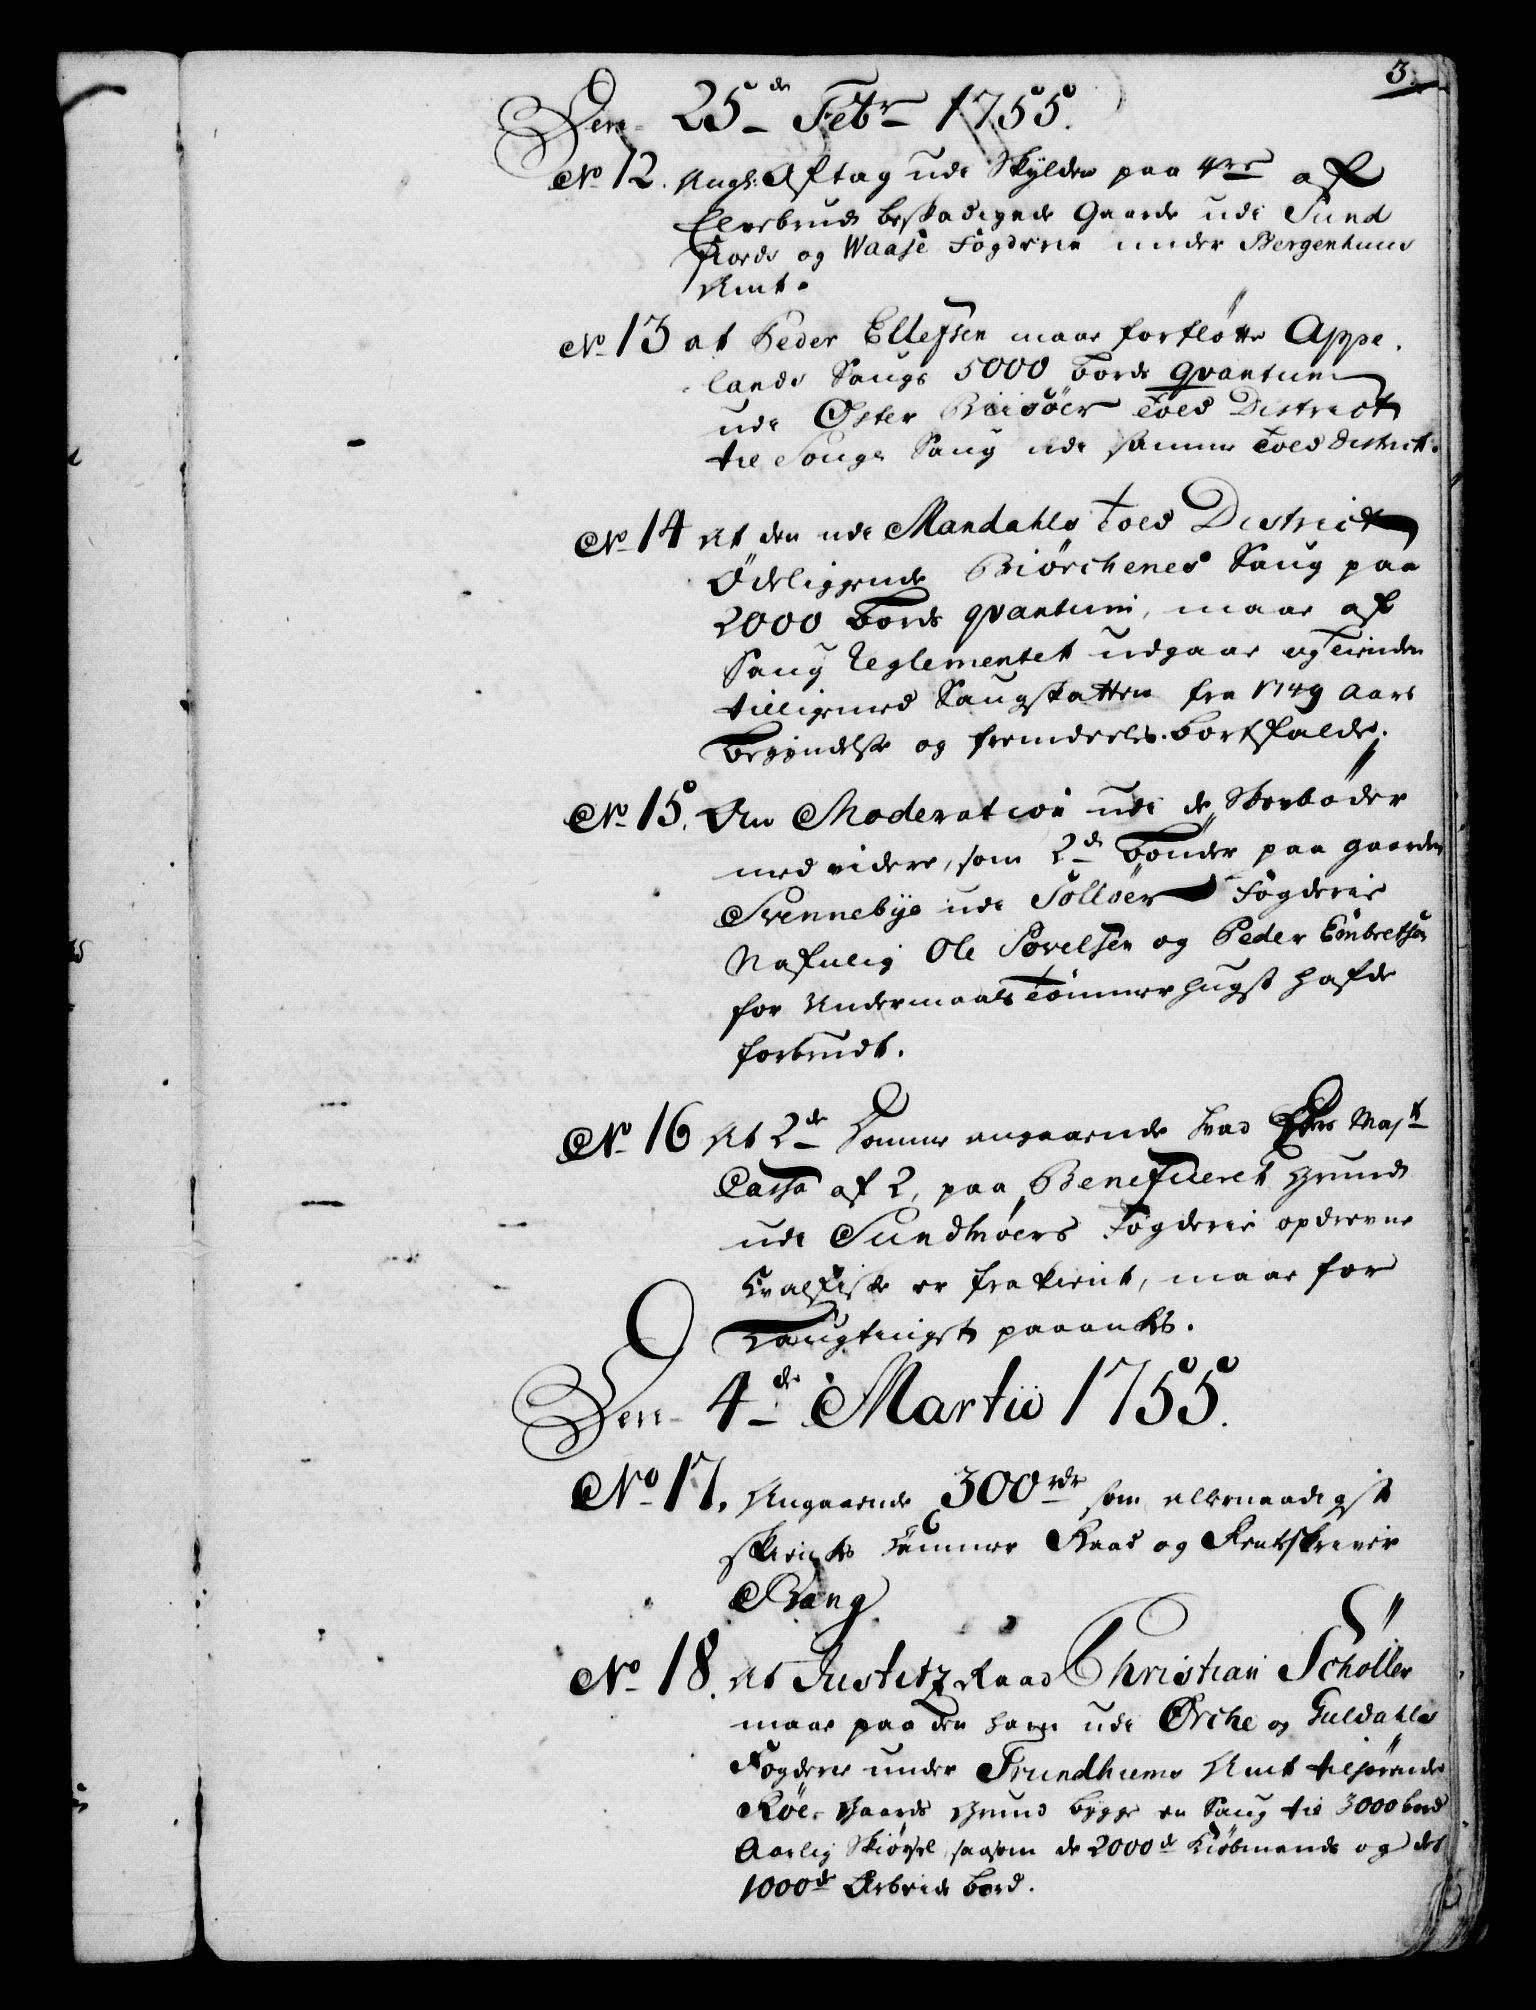 3.
Den 25de Febr 1755.
No 12. Angl: Aftag udi Skylden paa 4re af
Elvebrud beskadigede Gaarde udi Sund
Fiords og Waase Fogderie under Bergenhuus
Amt.
No 13 at Peder Ellefsen maae forfløtte Appe,
lands Saugs 5000 bords qvantum
udi Øster Riisöer Told District
til Songe Saug udi samme Told District.
No 14 At den udi Mandahls Told District
Ödeliggende Biörchenes Saug paa
2000 bords qvantum, maae af
Saug Reglementet udgaae og Tienden
tilligemed Saugskatten fra 1749 Aars
Begyndelse og fremdeeles bortfalde.
No 15. Om Moderation udi de Skovböder
med videre, som 2de bönder paa gaarden
Svennebye udi Sollöer Fogderie
Nafnlig Ole Povelsen og Peder Embretsön
for Undermaals Tömmer hugst hafde
forbrudt.
No 16 At 2de Domme angaaende hvad Eders Majts
Cassa af 2, paa Beneficeret Grund
udi Sundmöers Fogderie opdrevne
Hvalfiske er frakient, maae for
Laugtinget paaankes.
Den 4de Martii 1755.
No 17. Angaaende 300 rdr som allernaadigst
skienkes Kammer Raad og Rentskriver
Bang
No 18. At Justitz Raad Christian Schöller
maae paa den ham udi Örche og Guldahls
Fogderie under Trundhiems Amt tilhörende
Röe Gaards Grund bygge en Saug til 3000 bord
Aarlig Skiörsel, saasom de 2000de Kiöbmands og det
1000de Arbeids bord.